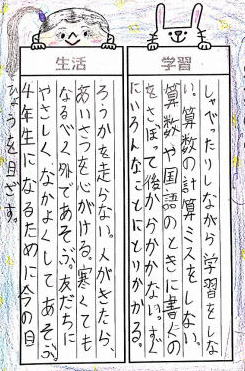 学習
しゃべったりしながら学習をしな
い。算数の計算ミスをしない。
算数や国語のときに書くの
をさぼって後からかかない。すぐ
にいろんなことにとりかかる。
生活
ろうかを走らない。人がきたら、
あいさつを心がける。寒くても
なるべく外であそぶ。友だちに
やさしく、なかよくしてあそぶ。
4年生になるために今の目
ひょうを目ざす。